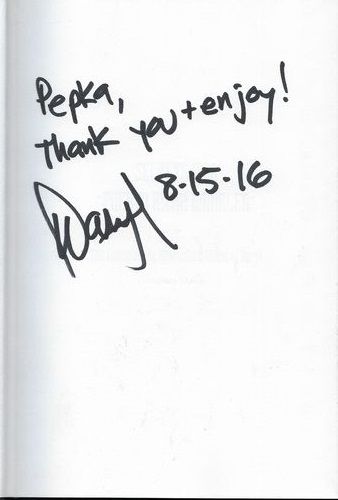 Pepka,
Thank you + enjoy!
8-15-16